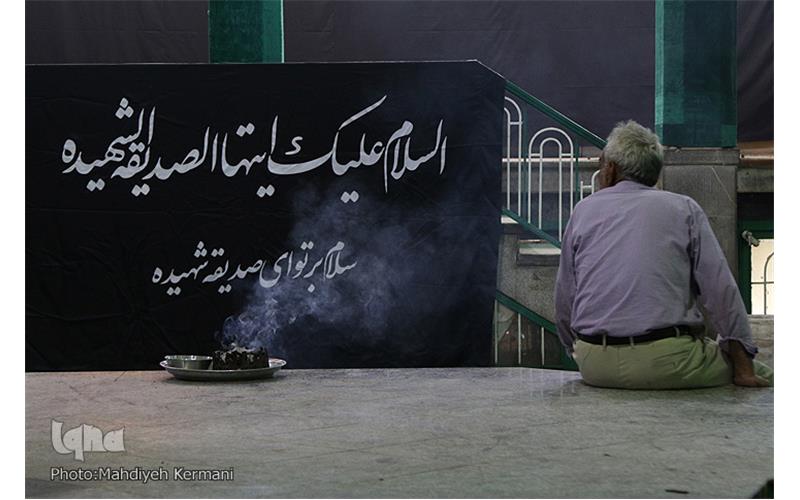 السلام علیک ایتها الصدیقة الشهیده
سلام بر تو ای صدیقه شهیده
iqna
Photo:Mahdiyeh Kermani